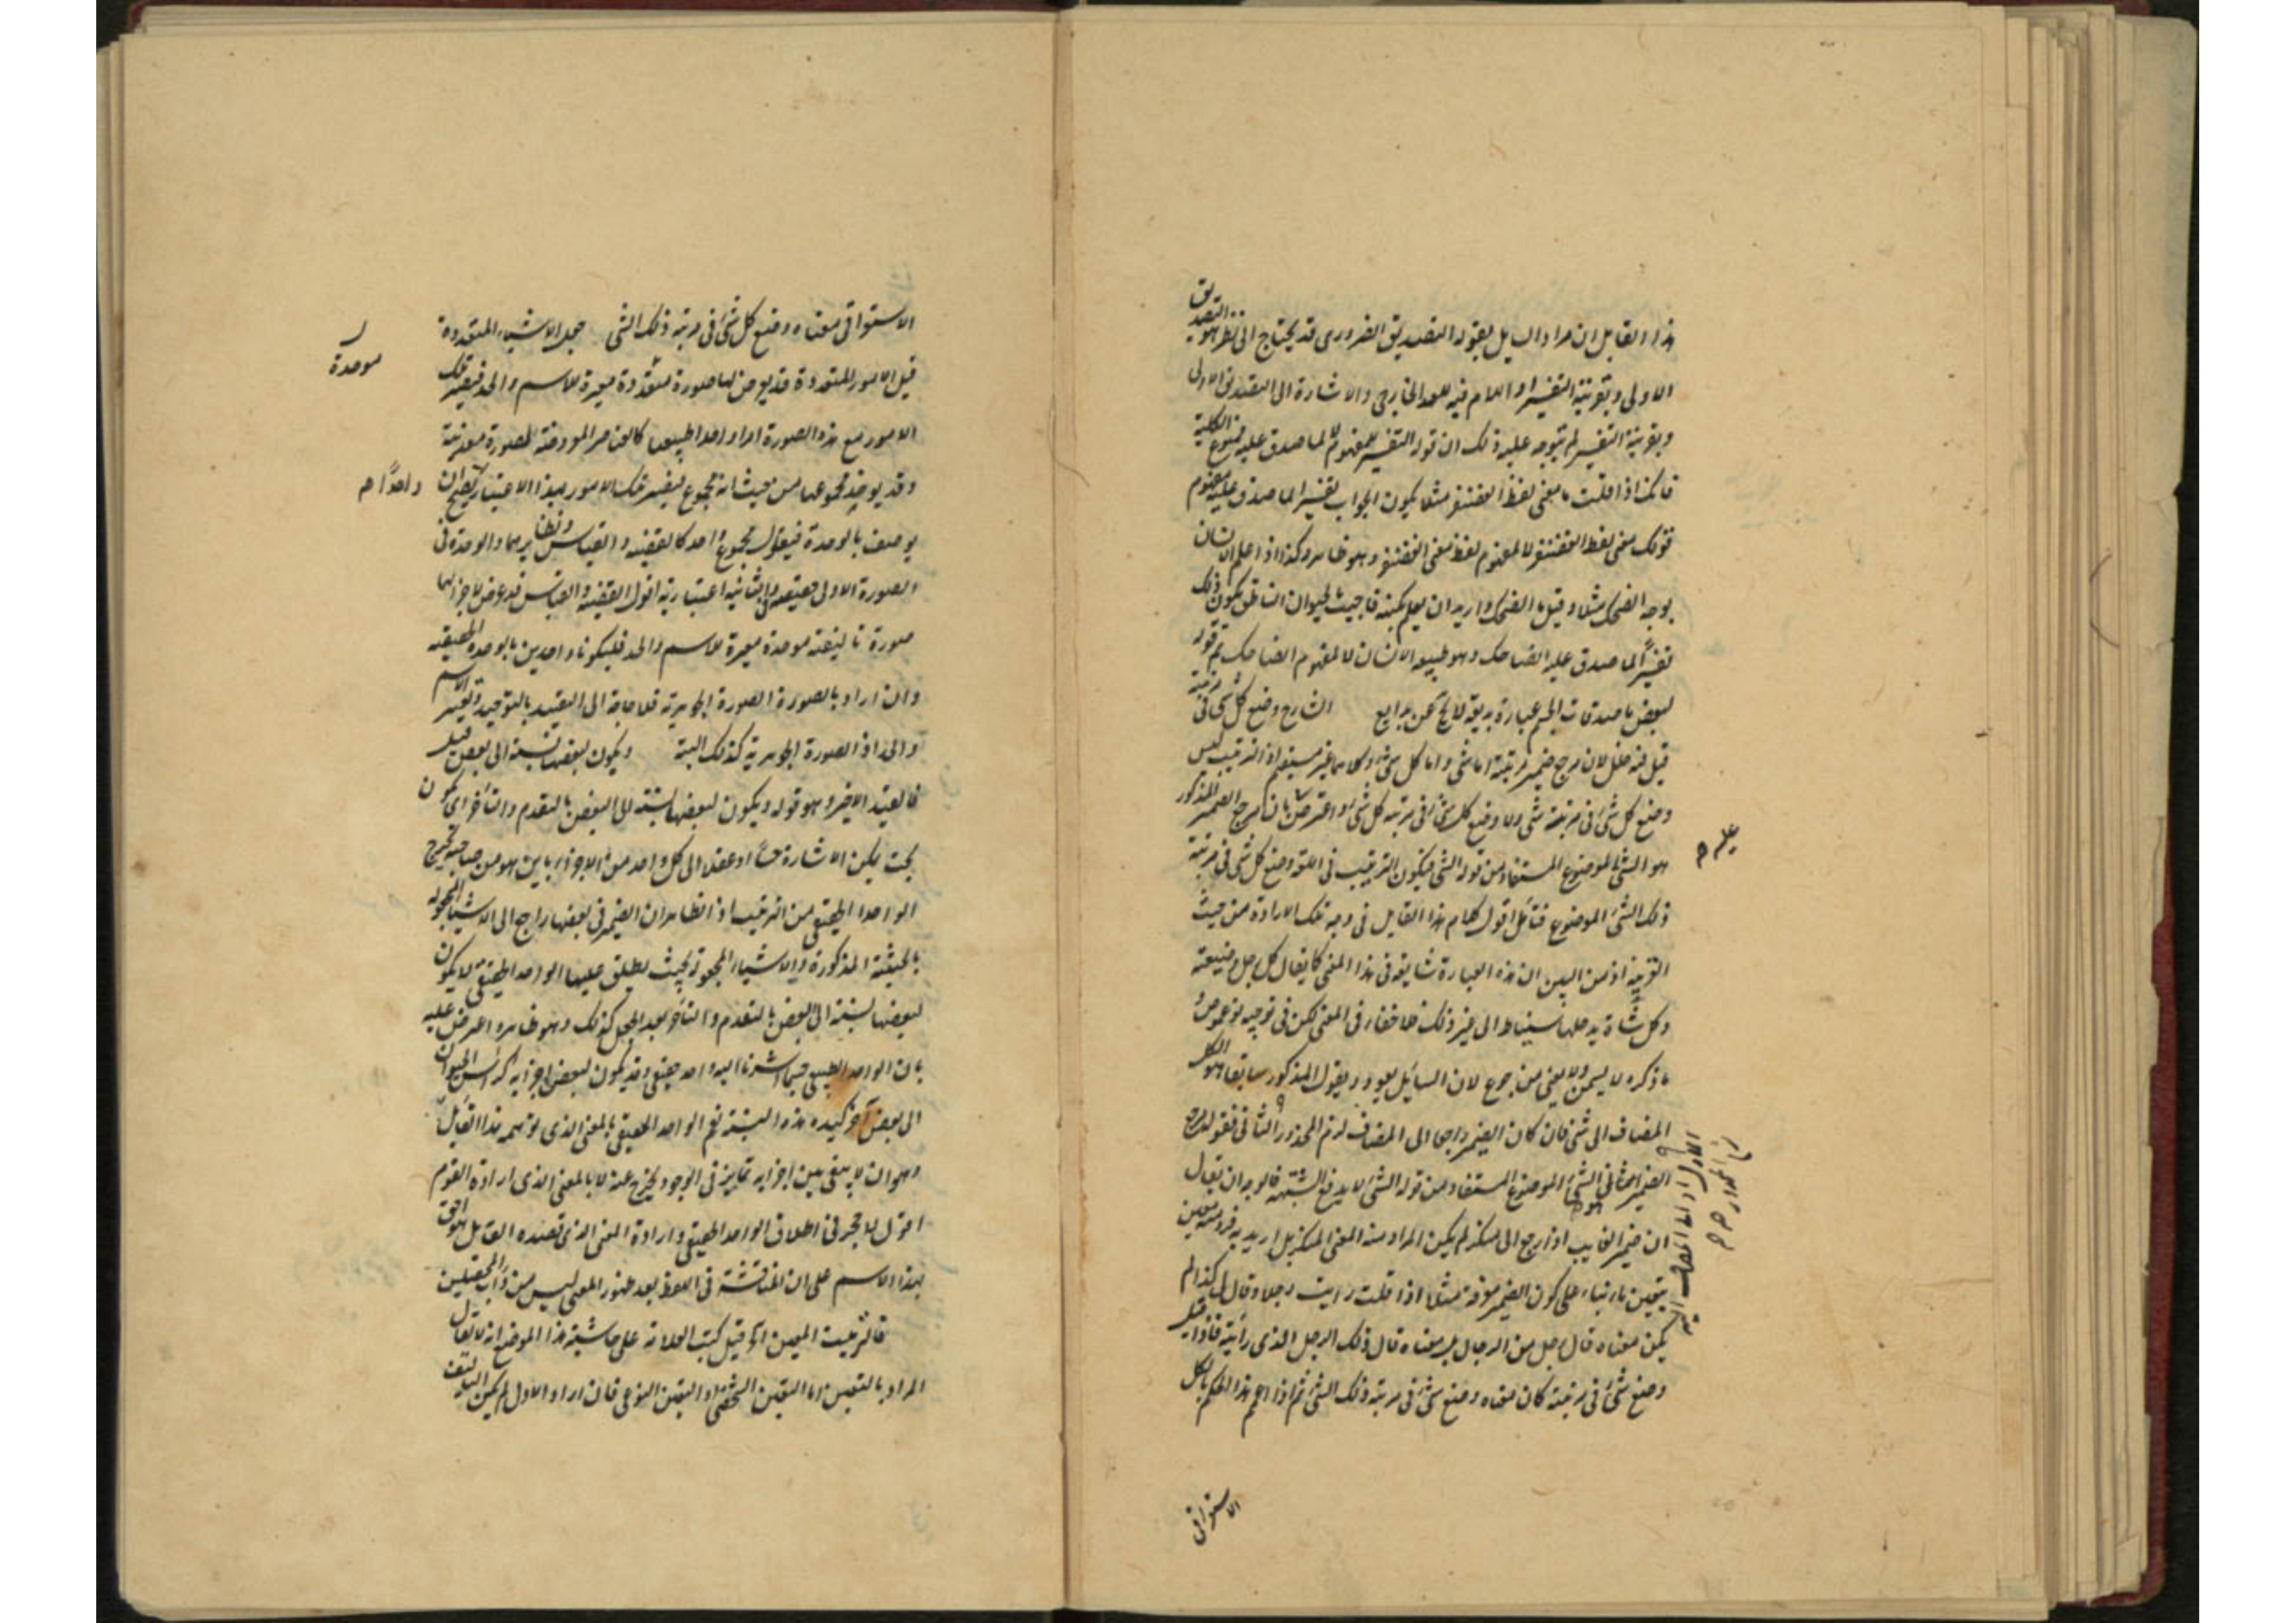 هذا القايل ان مراد السايل بقوله التصديق الضرورى قد يحتاج الى نظر هو التصديق
الاولى وبقرينة التفسير او اللام فيه للعهد الخارجى والاشارة الى التصديق الاولى
وبقرينة التفسير لم يتوجه عليه ذلك ان قوله التفسير للمفهوم لا لما صدق عليه ممنوع الكلية
فانك اذا قلت ما معنى لفظ الغضنفر مثلا يكون الجواب تفسيرا لما صدق عليه مفهوم
قولك معنى لفظ الغضنفر لا لمفهوم لفظ معنى الغضنفر وهو ظاهر وكذا اذا علم الانسان
بوجه الضحك مثلا وقيل ما الضحك واريد ان يعلم بكنهه فاجيب بالحيوان الناطق يكون ذلك
تفسيرًا لما صدق عليه الضاحك وهو طبيعه الانسان لا لمفهوم الضاحك ثم قوله
لبعض ما صدقات الجسم عبارة بديعة الشارح وضع كل شئ فى مرتبته
قيل فيه خلل لان مرجع ضمير مرتبته اما شئ واما كل شئ وكلاهما غير مستقيم اذ الترتيب ليس
وضع كل شئ فى مرتبة شئ ولا وضع كل شئ فى مرتبة كل شئ واعترض بان مرجع الضمير المذكور
هو الشئ الموضوع المستفاد من قوله الشئ فيكون الترتيب فى اللغة وضع كل شئ فى مرتبة
ذلك الشئ الموضوع فتأمل اقول كلام هذا القايل فى وجه تلك الارادة من حيث
القرينة اذ من البين ان هذه العبارة شايعة فى هذا المعنى كما يقال كل رجل وضيعته
وكل شاة بدرهمها الى غير ذلك فلا خفاء فى المعنى لكن فى توجيهه نوع غموض و
ما ذكره لا يسمن ولا يغنى من جوع لان السائل يعود ويقول المذكور سابقا هو الكل
المضاف الى شئ فان كان الضمير راجعا الى المضاف لزم المحذور الثانى فقوله مرجع
الضمير هو الشئ الموضوع المستفاد من قوله الشئ لا يدفع الشبهة فالوجه ان يقال
ان ضمير الغايب اذا رجع الى منكر لم يكن المراد منه المعنى المنكر بل اريد به فرد منه معين
بتعين ما بناء على كون الضمير معرفة مثلا اذا قلت رايت رجلا وقال لى كذا لم
يكن معناه قال رجل من الرجال بل معناه قال ذلك الرجل الذى رأيته فاذا قيل
وضع شئ فى مرتبته كان معناه وضع شئ فى مرتبة ذلك الشئ ثم اذا عمم هذا الحكم بالكل
عليه م
الاستواقى
الاستواقى معناه وضع كل شئ فى مرتبة ذلك الشئ جعل الاشياء المتعددة
قيل الامور المتعددة قد يعرض لها صورة متعددة معيرة للاسم والحد فيصير تلك
الامور مع هذه الصورة امرا واحدا طبيعيا كالعناصر المعروضة لصورة معدنية
وقد يوخذ مجموعها من حيث انه مجموع فيصير تلك الامور بهذا الاعتبار يصلح ان
يوصف بالوحدة فيقول مجموع واحد كالقضية والقياس ونظايرهما والوحدة فى
الصورة الاولى حقيقية وفى الثانية اعتبارية اقول القضية والقياس قد عرض لاجزائهما
صورة تاليفية موحدة معيرة للاسم والحد فليكونا واحدين بالوحدة الحقيقية
وان اراد بالصورة الصورة الجوهرية فلا حاجة الى التقييد بالتوحيد وتغيير الاسم
والحد اذ الصورة الجوهرية كذلك البتة ويكون لبعضها نسبة الى بعض قيل
فالقيد الاخير وهو قوله ويكون لبعضها نسبة الى البعض بالتقدم والتأخر اى يكون
بحيث يمكن الاشارة حسًا او عقلا الى كل واحد من الاجزاء باين هو من صاحبه يخرج
الواحد الحقيقى من الترتيب اذ الظاهر ان الضمير فى بعضها راجع الى الاشياء المجعولة
بالحيثية المذكورة والاشياء المجعولة بحيث يطلق عليها الواحد الحقيقى لا يكون
لبعضها نسبة الى البعض بالتقدم والتأخر بعد الجعل كذلك وهو ظاهر واعترض عليه
بان الواحد الطبيعى حيثما اشرنا اليه واحد حقيقى وقد يكون لبعض اجزايه كراس الحيوان
الى بعض آخر كيده هذه النسبة نعم الواحد الحقيقى بالمعنى الذى توهمه هذا القايل
وهو ان لا يبقى بين اجزايه تمايز فى الوجود يخرج عنه لا بالمعنى الذى اراده القوم
اقول لا حجر فى اطلاق الواحد الحقيقى وارادة المعنى الذى قصده القايل هو احق
بهذا الاسم على ان المناقشة فى اللفظ بعد ظهور المعنى ليس من داب المحصلين
قيل كتب العلامة على حاشية هذا الموضع انه لا يقال
المراد بالتعين اما التعين الشخصى او التعين النوعى فان اراد الاول لم يكن التاليف
موحدة
واحدًا م